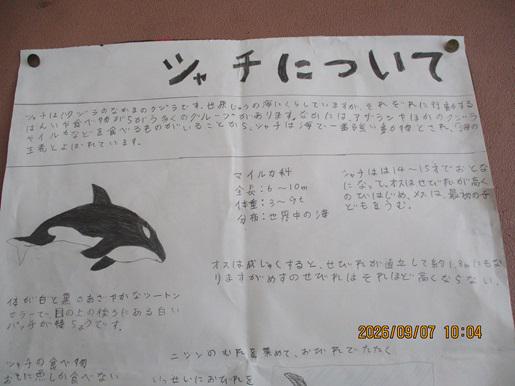 シャチについて
シャチはハクジラのなかまのクジラです。世界じゅうの海にくらしていますが、それぞれに行動する
はんいや食べ物がちがう多くのグループがあります。なかには、アザラシやほかのクジラ
やイルカなどを食べるものがいることから、シャチは海で一番強い動物とされ、「海の
王者とよばれています。
マイルカ科
全長:6〜10m
体重:3〜9t
分布:世界中の海
シャチはは14〜15才でおとな
になって、オスはせびれが高く
のびはじめ、メスは、最初の子
どもをうむ。
オスは成じゅくすると、せびれが直立して約1.8mにもな
りますがめすのせびれはそれほど高くならない。
体が白と黒のあざやかなツートン
カラーで、目の上の後ろにある白い
パッチが特ちょうです。
シャチの食べ物
おもに魚しか食べない
ニシンのむれを集めて、おびれでたたく
いっせいにおびれを
2026/09/07 10:04